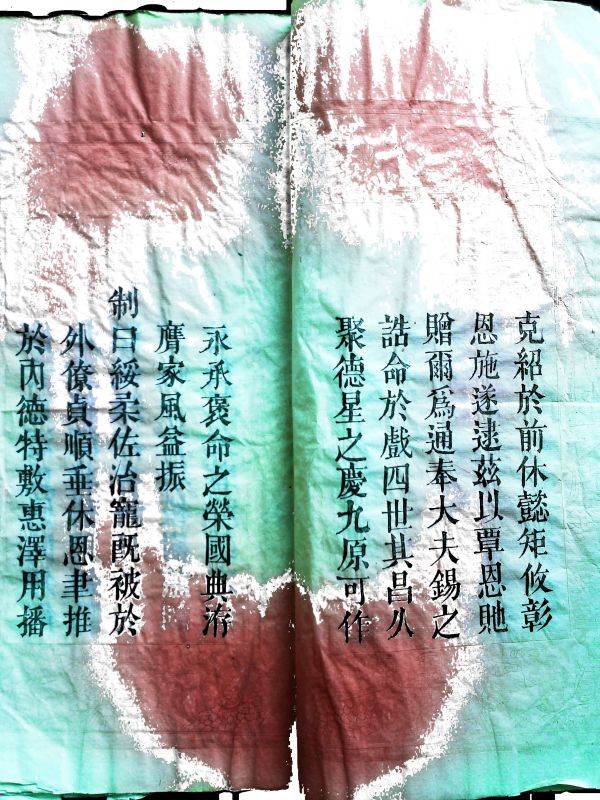 克紹於前休懿矩攸彰
恩施遂逮茲以覃恩貤
贈爾爲通奉大夫錫之
誥命於戲四世其昌久
聚德星之慶九原可作
永承褒命之榮國典洊
膺家風益振
制曰綏柔佐治寵旣被於
外僚貞順垂休恩聿推
於內德特敷惠澤用播